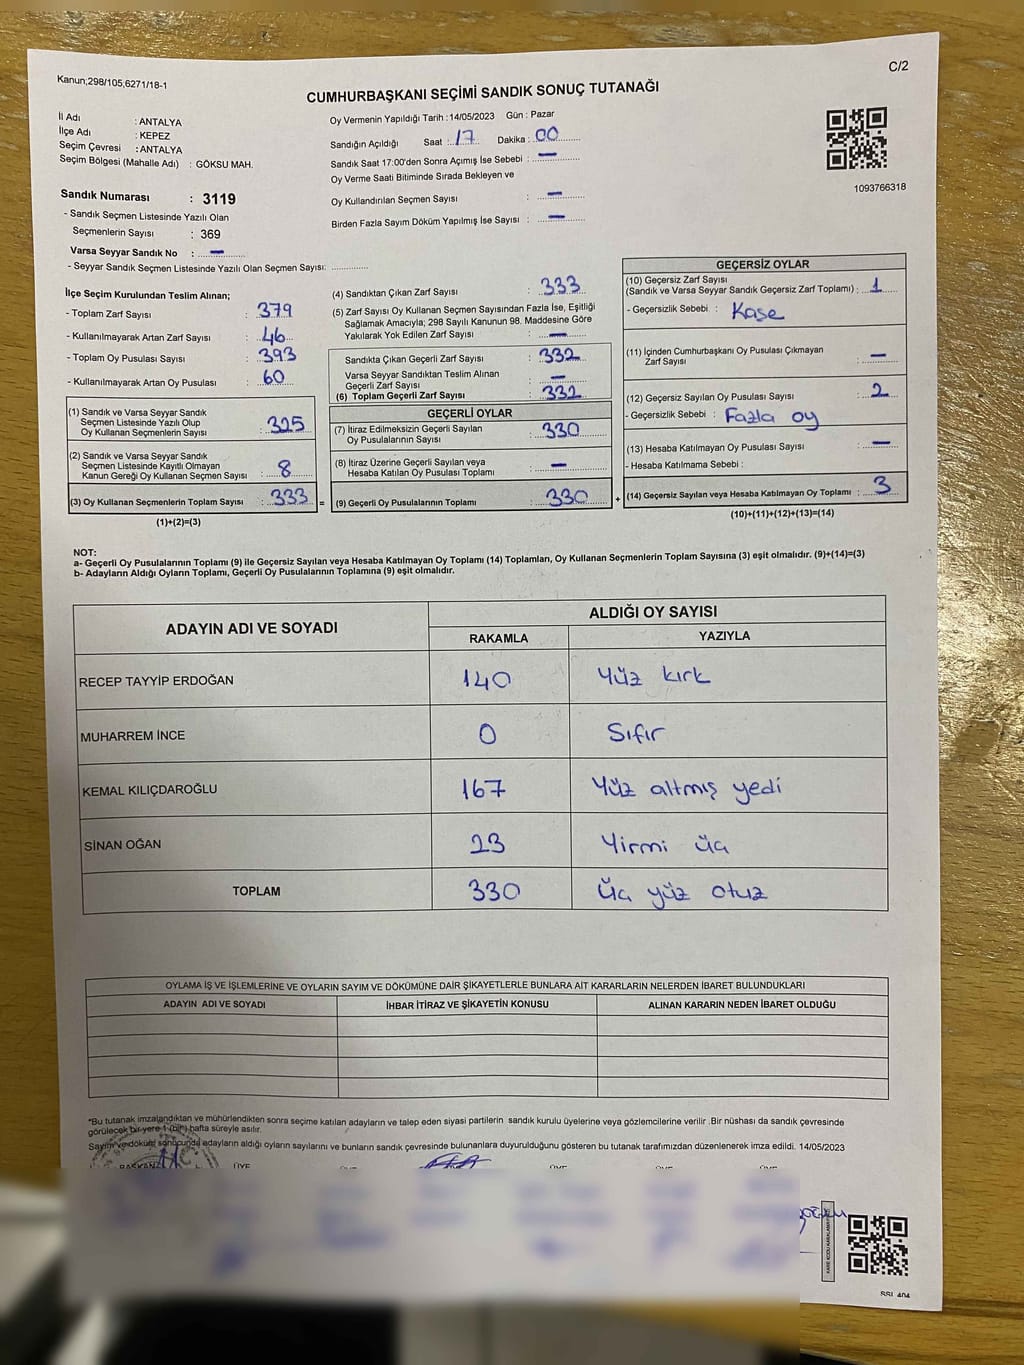 Kanun;298/105,6271/18-1
C/2
CUMHURBAŞKANI SEÇİMİ SANDIK SONUÇ TUTANAĞI
İl Adı : ANTALYA
İlçe Adı : KEPEZ
Seçim Çevresi : ANTALYA
Seçim Bölgesi (Mahalle Adı) : GÖKSU MAH.
Sandık Numarası : 3119
- Sandık Seçmen Listesinde Yazılı Olan
Seçmenlerin Sayısı : 369
Varsa Seyyar Sandık No : —
- Seyyar Sandık Seçmen Listesinde Yazılı Olan Seçmen Sayısı: ..............
Oy Vermenin Yapıldığı Tarih : 14/05/2023 Gün : Pazar
Sandığın Açıldığı Saat : 17 Dakika : 00
Sandık Saat 17:00'den Sonra Açımış İse Sebebi : —
Oy Verme Saati Bitiminde Sırada Bekleyen ve
Oy Kullandırılan Seçmen Sayısı : —
Birden Fazla Sayım Döküm Yapılmış İse Sayısı : —
1093766318
İlçe Seçim Kurulundan Teslim Alınan;
- Toplam Zarf Sayısı : 379
- Kullanılmayarak Artan Zarf Sayısı : 46
- Toplam Oy Pusulası Sayısı : 393
- Kullanılmayarak Artan Oy Pusulası : 60
(1) Sandık ve Varsa Seyyar Sandık
Seçmen Listesinde Yazılı Olup
Oy Kullanan Seçmenlerin Sayısı : 325
(2) Sandık ve Varsa Seyyar Sandık
Seçmen Listesinde Kayıtlı Olmayan
Kanun Gereği Oy Kullanan Seçmen Sayısı : 8
(3) Oy Kullanan Seçmenlerin Toplam Sayısı : 333 =
(1)+(2)=(3)
(4) Sandıktan Çıkan Zarf Sayısı : 333
(5) Zarf Sayısı Oy Kullanan Seçmen Sayısından Fazla İse, Eşitliği
Sağlamak Amacıyla; 298 Sayılı Kanunun 98. Maddesine Göre
Yakılarak Yok Edilen Zarf Sayısı : —
Sandıkta Çıkan Geçerli Zarf Sayısı : 332
Varsa Seyyar Sandıktan Teslim Alınan
Geçerli Zarf Sayısı : —
(6) Toplam Geçerli Zarf Sayısı : 332
GEÇERLİ OYLAR
(7) İtiraz Edilmeksizin Geçerli Sayılan
Oy Pusulalarının Sayısı : 330
(8) İtiraz Üzerine Geçerli Sayılan veya
Hesaba Katılan Oy Pusulası Toplamı : —
(9) Geçerli Oy Pusulalarının Toplamı : 330 +
GEÇERSİZ OYLAR
(10) Geçersiz Zarf Sayısı
(Sandık ve Varsa Seyyar Sandık Geçersiz Zarf Toplamı) : 1
- Geçersizlik Sebebi : Kaşe
(11) İçinden Cumhurbaşkanı Oy Pusulası Çıkmayan
Zarf Sayısı : —
(12) Geçersiz Sayılan Oy Pusulası Sayısı : 2
- Geçersizlik Sebebi : Fazla oy
(13) Hesaba Katılmayan Oy Pusulası Sayısı : —
- Hesaba Katılmama Sebebi :
(14) Geçersiz Sayılan veya Hesaba Katılmayan Oy Toplamı : 3
(10)+(11)+(12)+(13)=(14)
NOT:
a- Geçerli Oy Pusulalarının Toplamı (9) ile Geçersiz Sayılan veya Hesaba Katılmayan Oy Toplamı (14) Toplamları, Oy Kullanan Seçmenlerin Toplam Sayısına (3) eşit olmalıdır. (9)+(14)=(3)
b- Adayların Aldığı Oyların Toplamı, Geçerli Oy Pusulalarının Toplamına (9) eşit olmalıdır.
ADAYIN ADI VE SOYADI
ALDIĞI OY SAYISI
RAKAMLA YAZIYLA
RECEP TAYYİP ERDOĞAN 140 Yüz kırk
MUHARREM İNCE 0 Sıfır
KEMAL KILIÇDAROĞLU 167 Yüz altmış yedi
SİNAN OĞAN 23 Yirmi üç
TOPLAM 330 Üç yüz otuz
OYLAMA İŞ VE İŞLEMLERİNE VE OYLARIN SAYIM VE DÖKÜMÜNE DAİR ŞİKAYETLERLE BUNLARA AİT KARARLARIN NELERDEN İBARET BULUNDUKLARI
ADAYIN ADI VE SOYADI İHBAR İTİRAZ VE ŞİKAYETİN KONUSU ALINAN KARARIN NEDEN İBARET OLDUĞU
*Bu tutanak imzalandıktan ve mühürlendikten sonra seçime katılan adayların ve talep eden siyasi partilerin sandık kurulu üyelerine veya gözlemcilerine verilir .Bir nüshası da sandık çevresinde
görülecek bir yere 1 (bir) hafta süreyle asılır.
Sayım ve döküm sonucunda adayların aldığı oyların sayılarını ve bunların sandık çevresinde bulunanlara duyurulduğunu gösteren bu tutanak tarafımızdan düzenlenerek imza edildi. 14/05/2023
BAŞKAN ÜYE